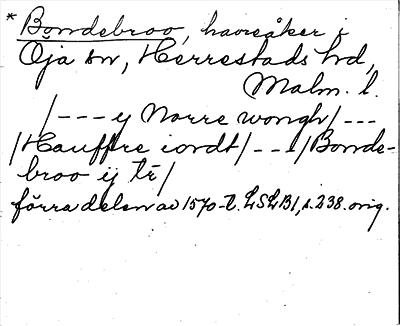 * Bondebroo, havreåker i
Öja sn, Herrestads hd,
Malm. l.
/--- y Norre wongh/---
/Hauffre iordt/---/Bonde-
broo ij tr̄/
förra delen av 1570-t. LSLB1, s. 238. orig.